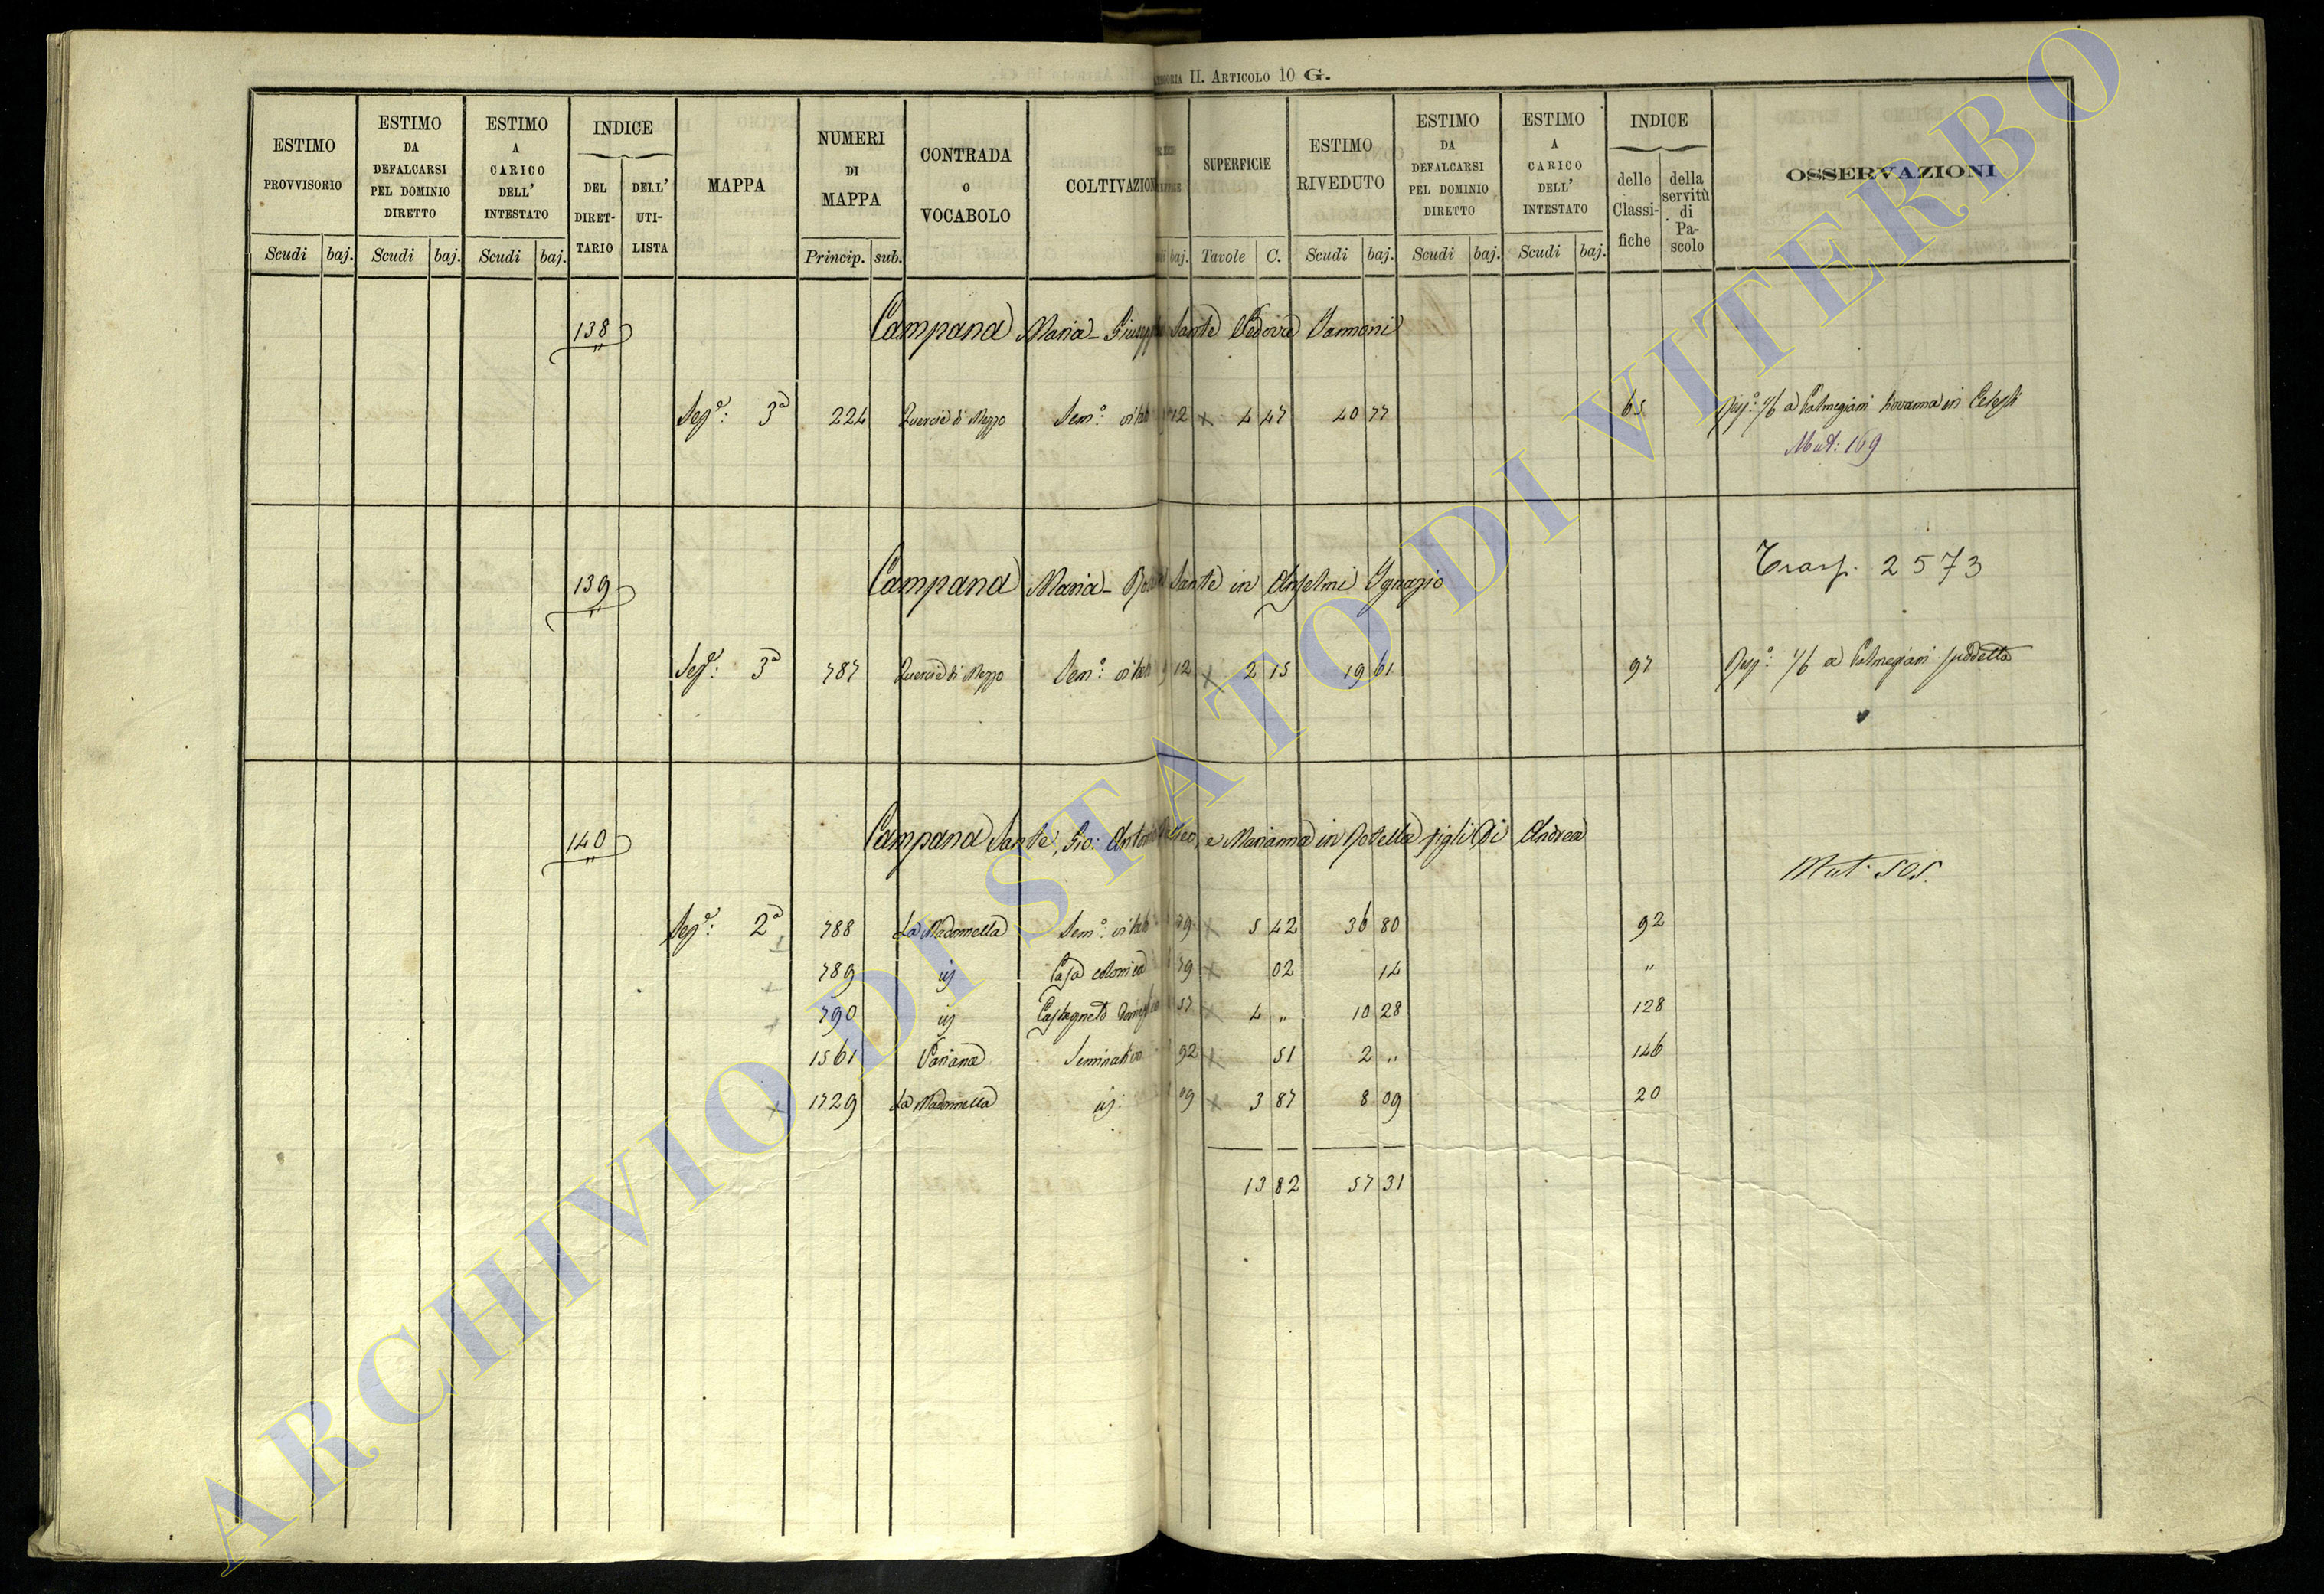 ATEGORIA II. ARTICOLO 10 G.
ESTIMO PROVVISORIO
ESTIMO DA DEFALCARSI PEL DOMINIO DIRETTO
ESTIMO A CARICO DELL' INTESTATO
INDICE
DEL DIRETTARIO
DELL' UTILISTA
MAPPA
NUMERI DI MAPPA
CONTRADA O VOCABOLO
COLTIVAZION
SUPERFICIE
ESTIMO RIVEDUTO
ESTIMO DA DEFALCARSI PEL DOMINIO DIRETTO
ESTIMO A CARICO DELL' INTESTATO
INDICE
delle Classifiche
della servitù di Pascolo
OSSERVAZIONI
Scudi baj. Scudi baj. Scudi baj. Princip. sub. baj. Tavole C. Scudi baj. Scudi baj. Scudi baj.
138 Campana Maria - Sante Vedova Vannoni
Sez.e: 3a 224 Quercia di Mezzo Sem.o vitat 12 4 47 40 77 65
Mut: 169
139 Campana Maria - Sante in Anselmi Ignazio
Trasp. 2573
Sez.e: 3a 787 Quercia di Mezzo Sem.o vitat 12 2 15 19 61 97
140 Campana Sante, Gio: Anton e Marianna in Rotella figli di Andrea
Mut. 505.
Sez.e: 2a 788 La Madonnella Sem.o vitat 79 5 42 36 80 92
789 id Casa colonica 79 02 14 "
790 id Castagneto 57 4 " 10 28 128
1561 Variana Seminativo 92 51 2 " 146
1729 La Madonnella id. 09 3 87 8 09 20
13 82 57 31
ARCHIVIO DI STATO DI VITERBO